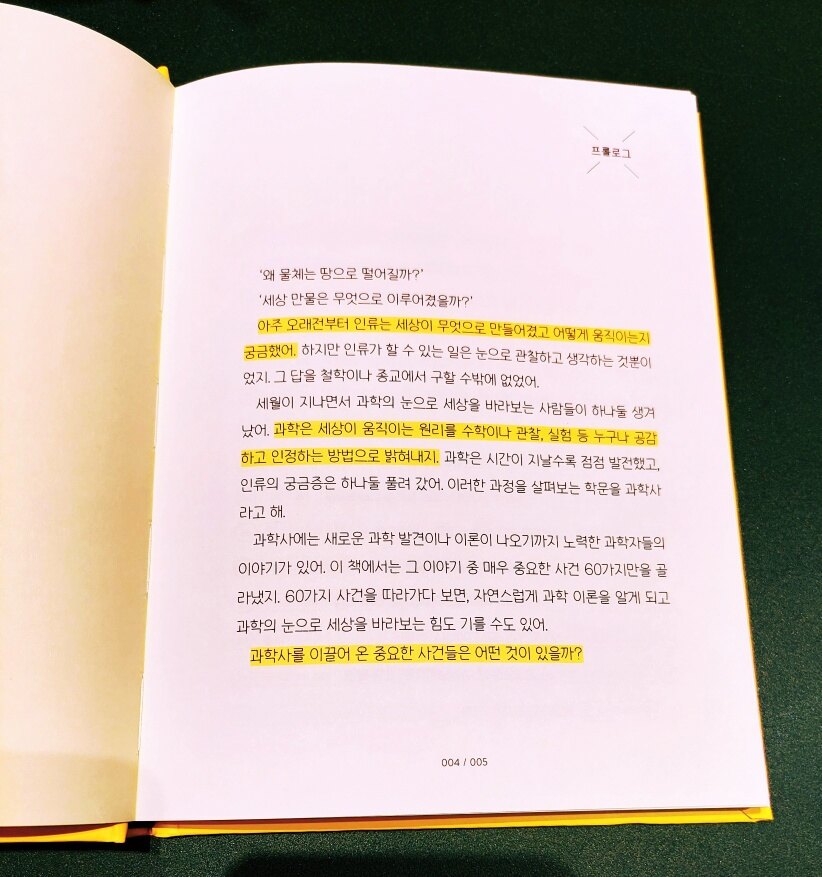 프롤로그
‘왜 물체는 땅으로 떨어질까?’
‘세상 만물은 무엇으로 이루어졌을까?’
아주 오래전부터 인류는 세상이 무엇으로 만들어졌고 어떻게 움직이는지
궁금했어. 하지만 인류가 할 수 있는 일은 눈으로 관찰하고 생각하는 것뿐이
었지. 그 답을 철학이나 종교에서 구할 수밖에 없었어.
세월이 지나면서 과학의 눈으로 세상을 바라보는 사람들이 하나둘 생겨
났어. 과학은 세상이 움직이는 원리를 수학이나 관찰, 실험 등 누구나 공감
하고 인정하는 방법으로 밝혀내지. 과학은 시간이 지날수록 점점 발전했고,
인류의 궁금증은 하나둘 풀려 갔어. 이러한 과정을 살펴보는 학문을 과학사
라고 해.
과학사에는 새로운 과학 발견이나 이론이 나오기까지 노력한 과학자들의
이야기가 있어. 이 책에서는 그 이야기 중 매우 중요한 사건 60가지만을 골
라냈지. 60가지 사건을 따라가다 보면, 자연스럽게 과학 이론을 알게 되고
과학의 눈으로 세상을 바라보는 힘도 기를 수도 있어.
과학사를 이끌어 온 중요한 사건들은 어떤 것이 있을까?
004 / 005